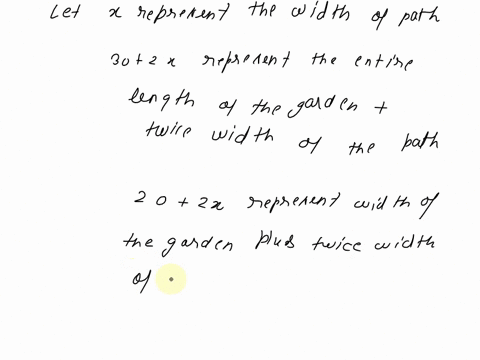 Let x represent the width of path
30+2x represent the entire
length of the garden +
twice width of the path
20+2x represent width of
the garden plus twice width
of